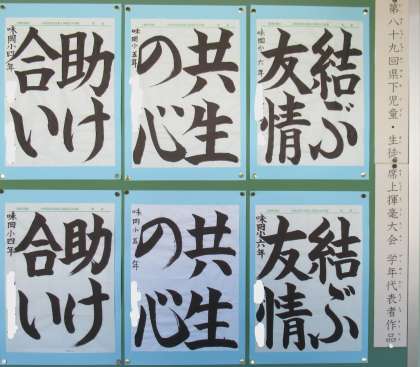 第八十九回県下児童・生徒席上揮毫大会 学年代表者作品
結ぶ
友情
味岡小六年
共生
の心
味岡小五年
助け
合い
味岡小四年
結ぶ
友情
味岡小六年
共生
の心
味岡小五年
助け
合い
味岡小四年